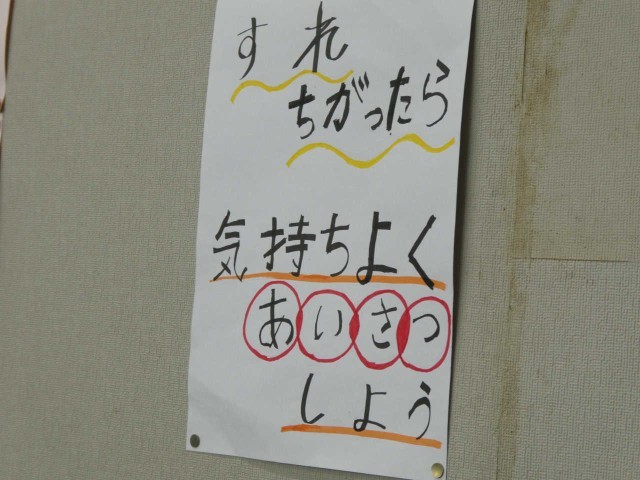 すれ
ちがったら
気持ちよく
あいさつ
しよう